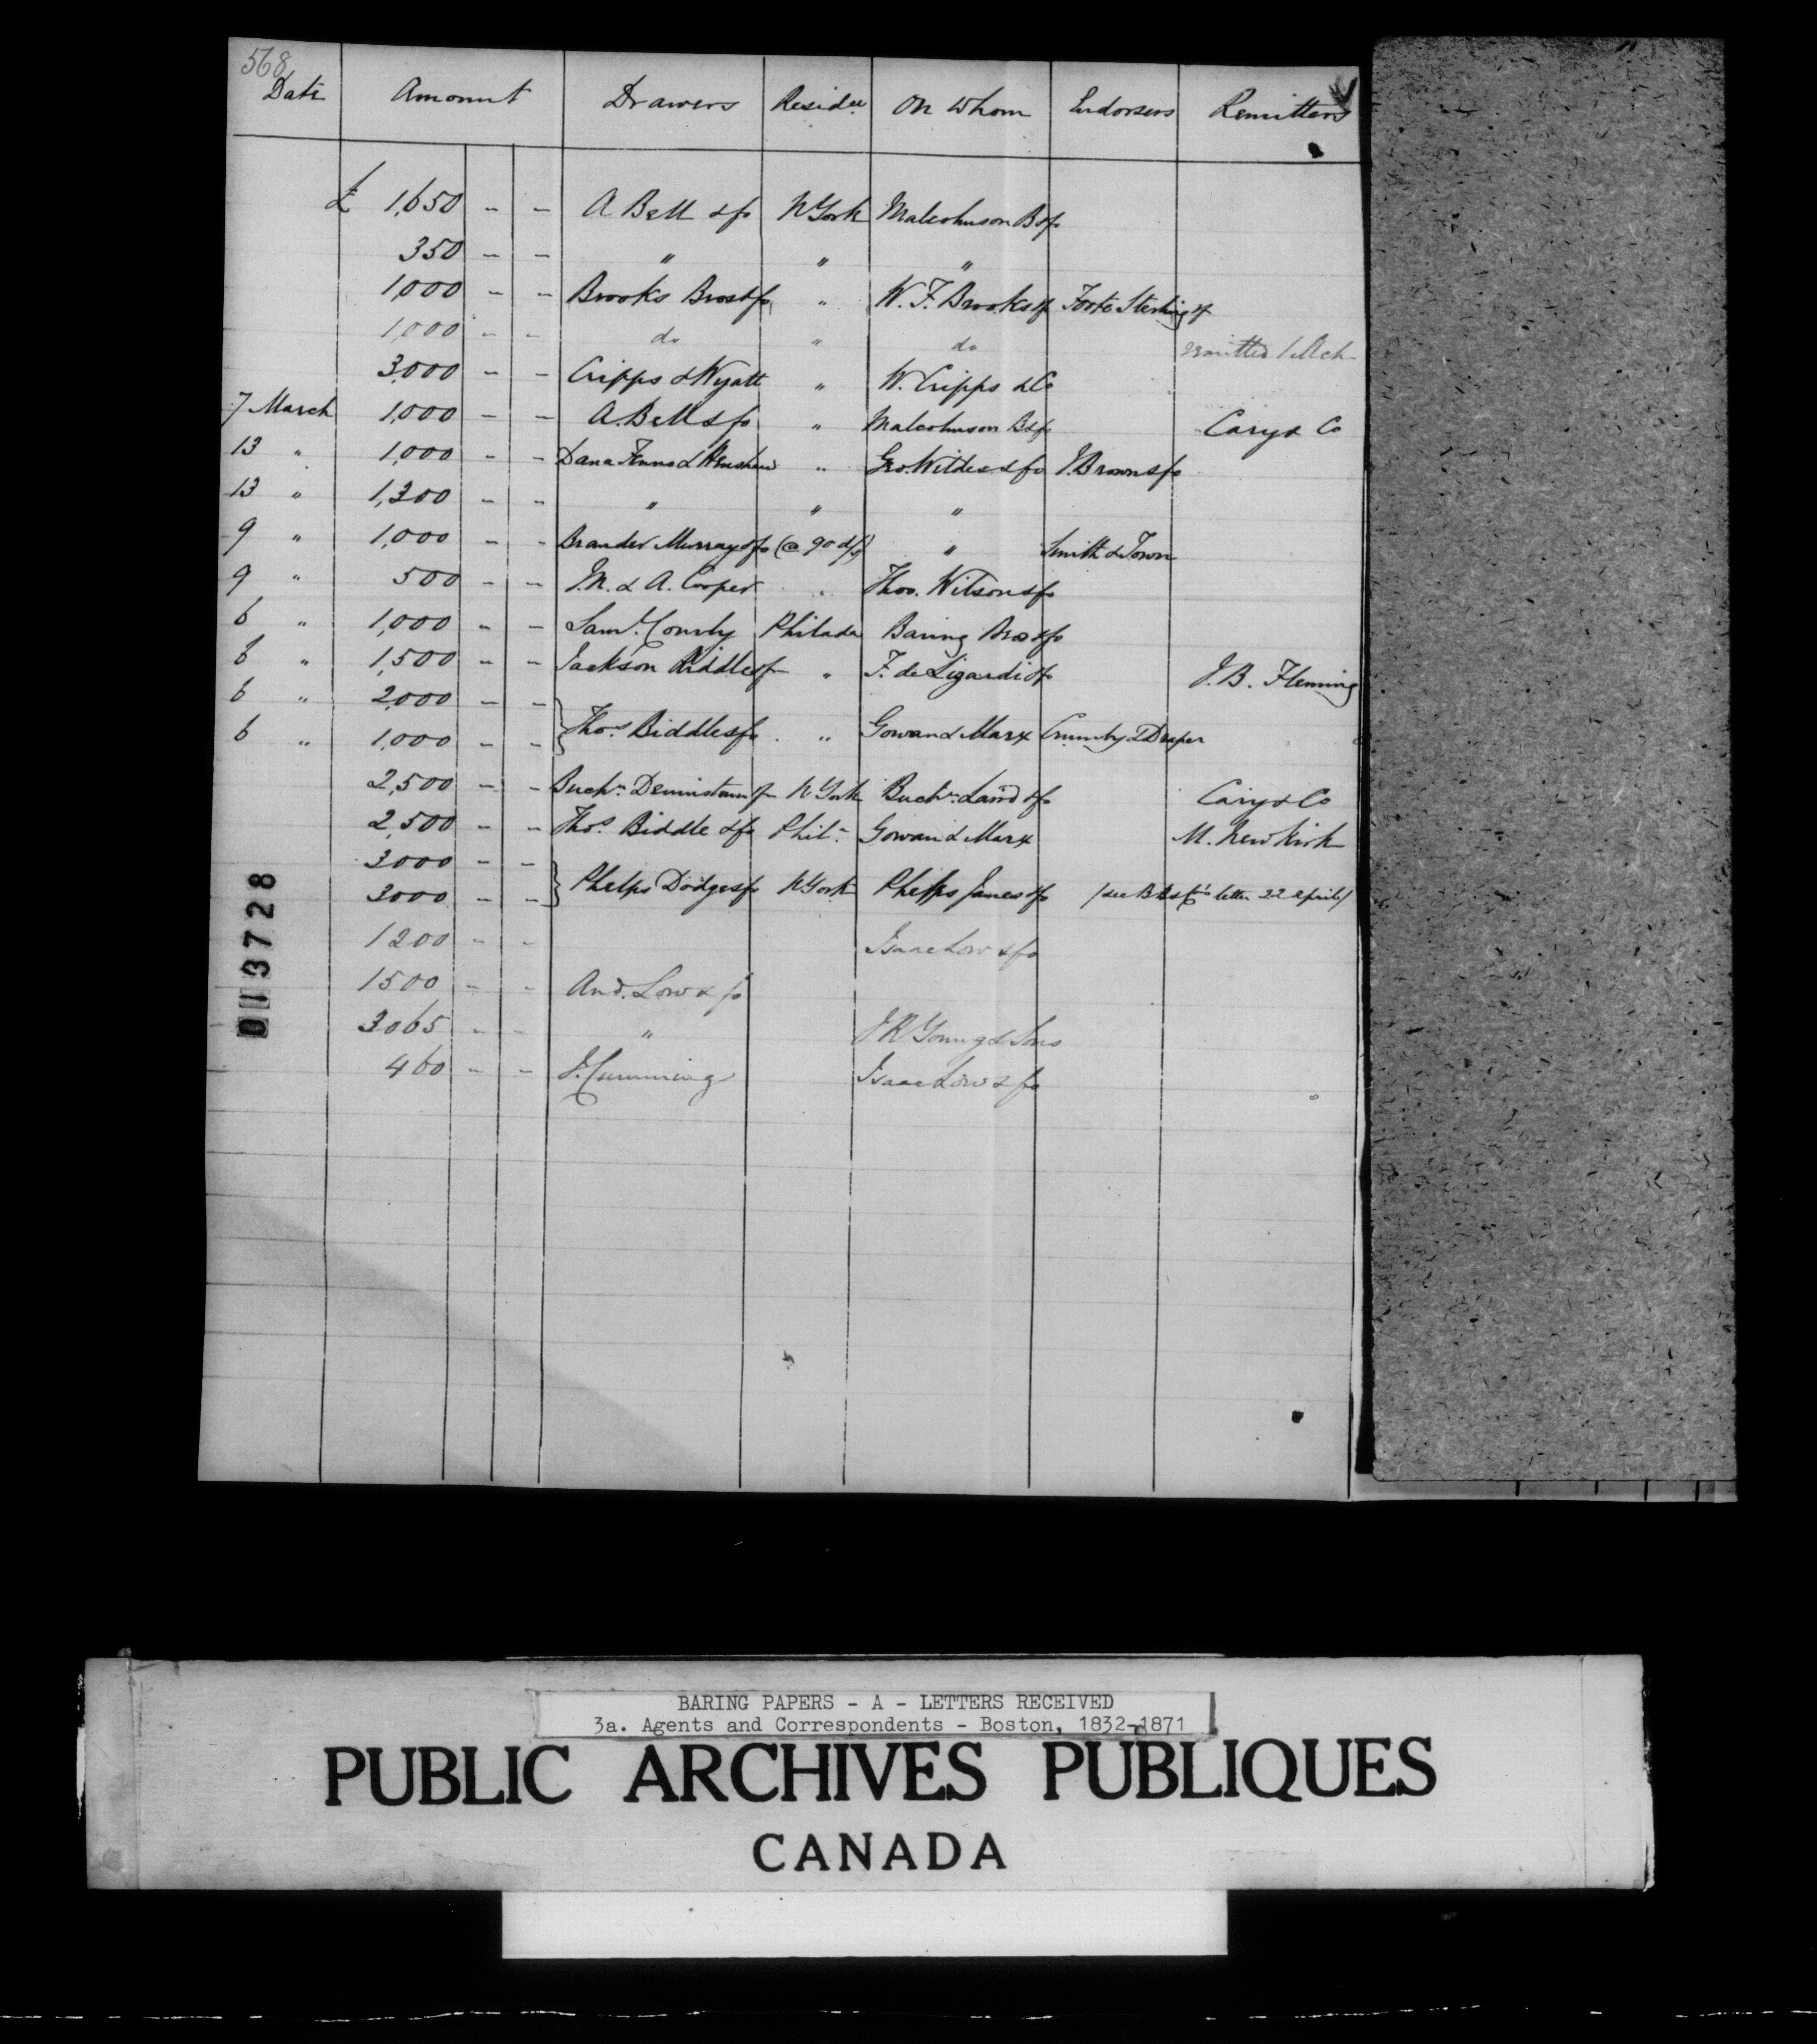 568
Date Amount Drawers Residce On Whom Endorsers Remitters
£ 1,650 - - A Bell & Co N York Malcolmson B & Co
350 - - " " "
1,000 - - Brooks Bros & Co " W. F. Brooks & Co Foote Sterling & Co
1,000 - - do " do remitted 1 Mch
3,000 - - Cripps & Wyatt " W. Cripps & Co
7 March 1,000 - - A. Bell & Co " Malcolmson B & Co Cary & Co
13 " 1,000 - - Dana Fenno & Henshaw " Geo. Wildes & Co J. Brown & Co
13 " 1,300 - - " " "
9 " 1,000 - - Brander Murray & Co (@ 90 d/s) " Smith & Town
9 " 500 - - J. M. & A. Cooper " Thos. Wilson & Co
6 " 1,000 - - Saml. Comly Philada Baring Bros & Co
6 " 1,500 - - Jackson Riddle & Co " F. de Lizardi & Co J. B. Fleming
6 " 2,000 - -
6 " 1,000 - - } Thos. Biddle & Co " Gowan & Marx & Draper
2,500 - - Buchn. Dennistoun & Co N York Buchn. Laird & Co Cary & Co
2,500 - - Thos. Biddle & Co Phil- Gowan & Marx M. Newkirk
3000 - -
3000 - - } Phelps Dodge & Co N York Phelps James & Co /see B B & Co's letter 22 April/
1200 - - Isaac Low & Co
1500 - - And. Low & Co
3065 - - " J R Young & Sons
460 - - J. Cumming Isaac Low & Co
013728
BARING PAPERS - A - LETTERS RECEIVED
3a. Agents and Correspondents - Boston, 1832-1871
PUBLIC ARCHIVES PUBLIQUES
CANADA